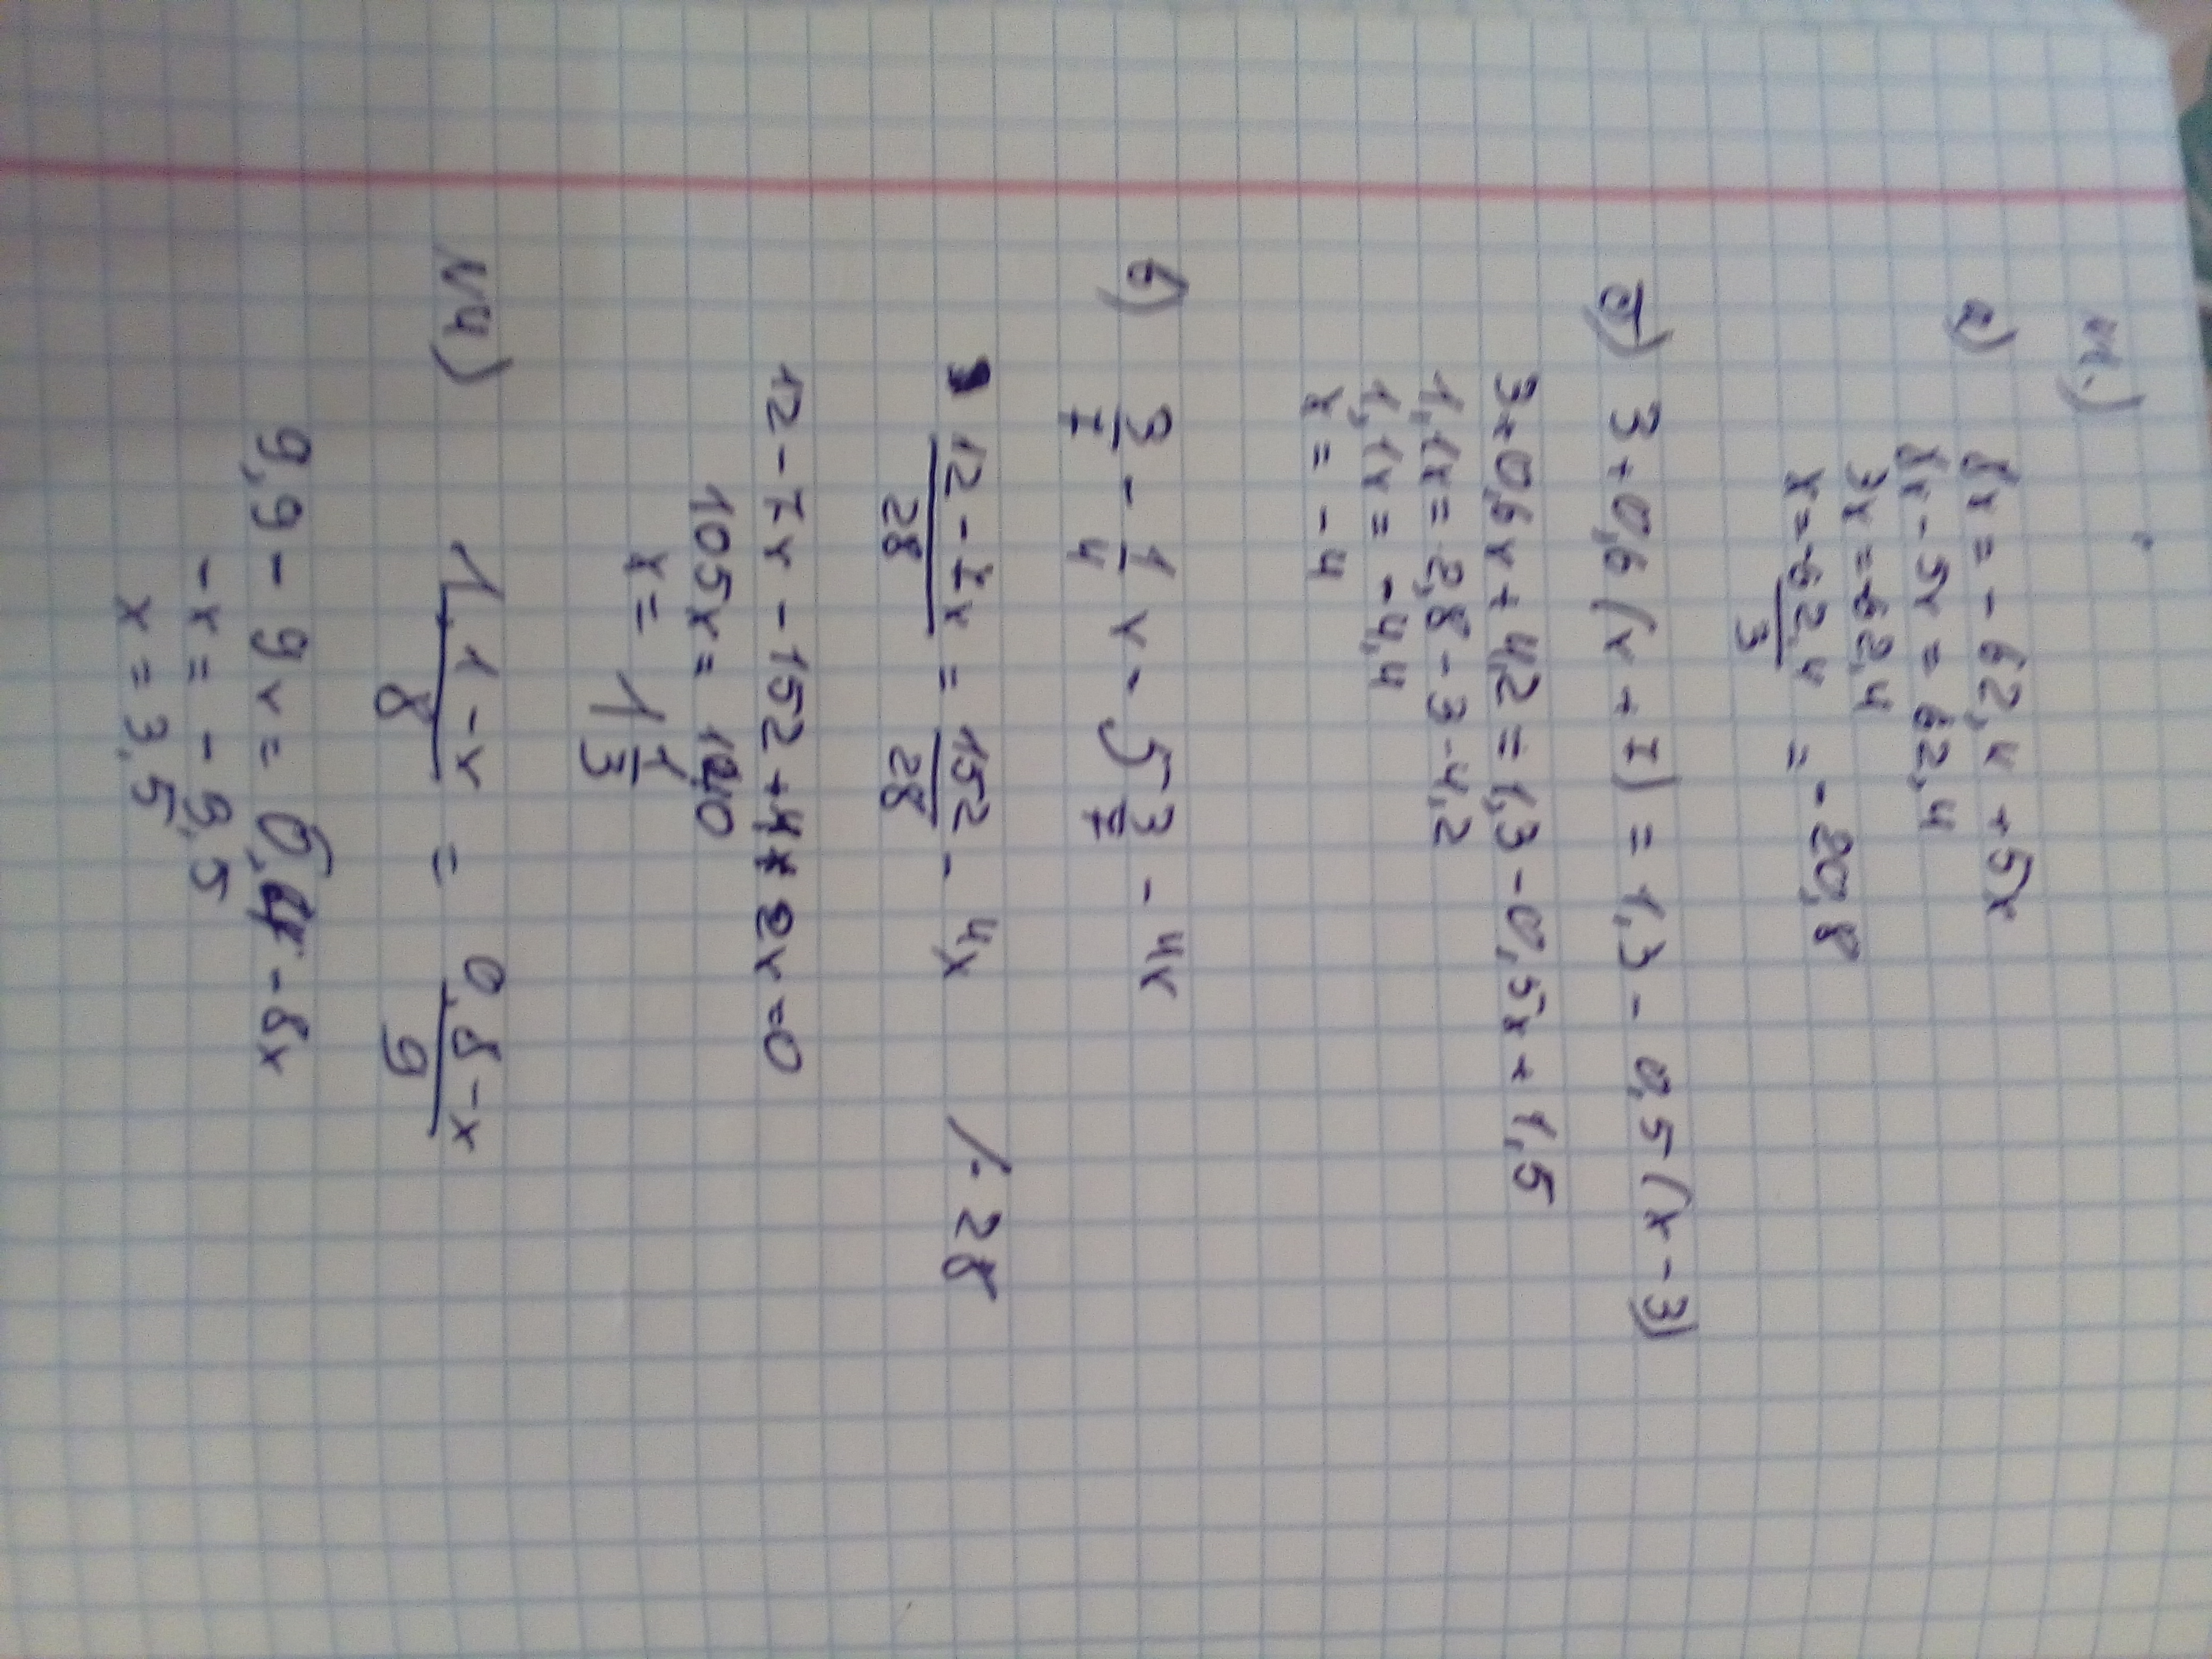 №1.)
а) 8x = - 62,4 + 5x
8x - 5x = 62,4
3x = -62,4
x = -62,4/3 = - 20,8
б) 3 + 0,6 (x + 7) = 1,3 - 0,5 (x - 3)
3 + 0,6x + 4,2 = 1,3 - 0,5x + 1,5
1,1x = 2,8 - 3 - 4,2
1,1x = - 4,4
x = - 4
в) 3/7 - 1/4 x = 5 3/7 - 4x
12 - 7x/28 = 152/28 - 4x /· 28
12 - 7x - 152 + 112x = 0
105x = 140
x = 1 1/3
№4) 1,1 - x/8 = 0,8 - x/9
9,9 - 9x = 6,4 - 8x
- x = - 3,5
x = 3,5